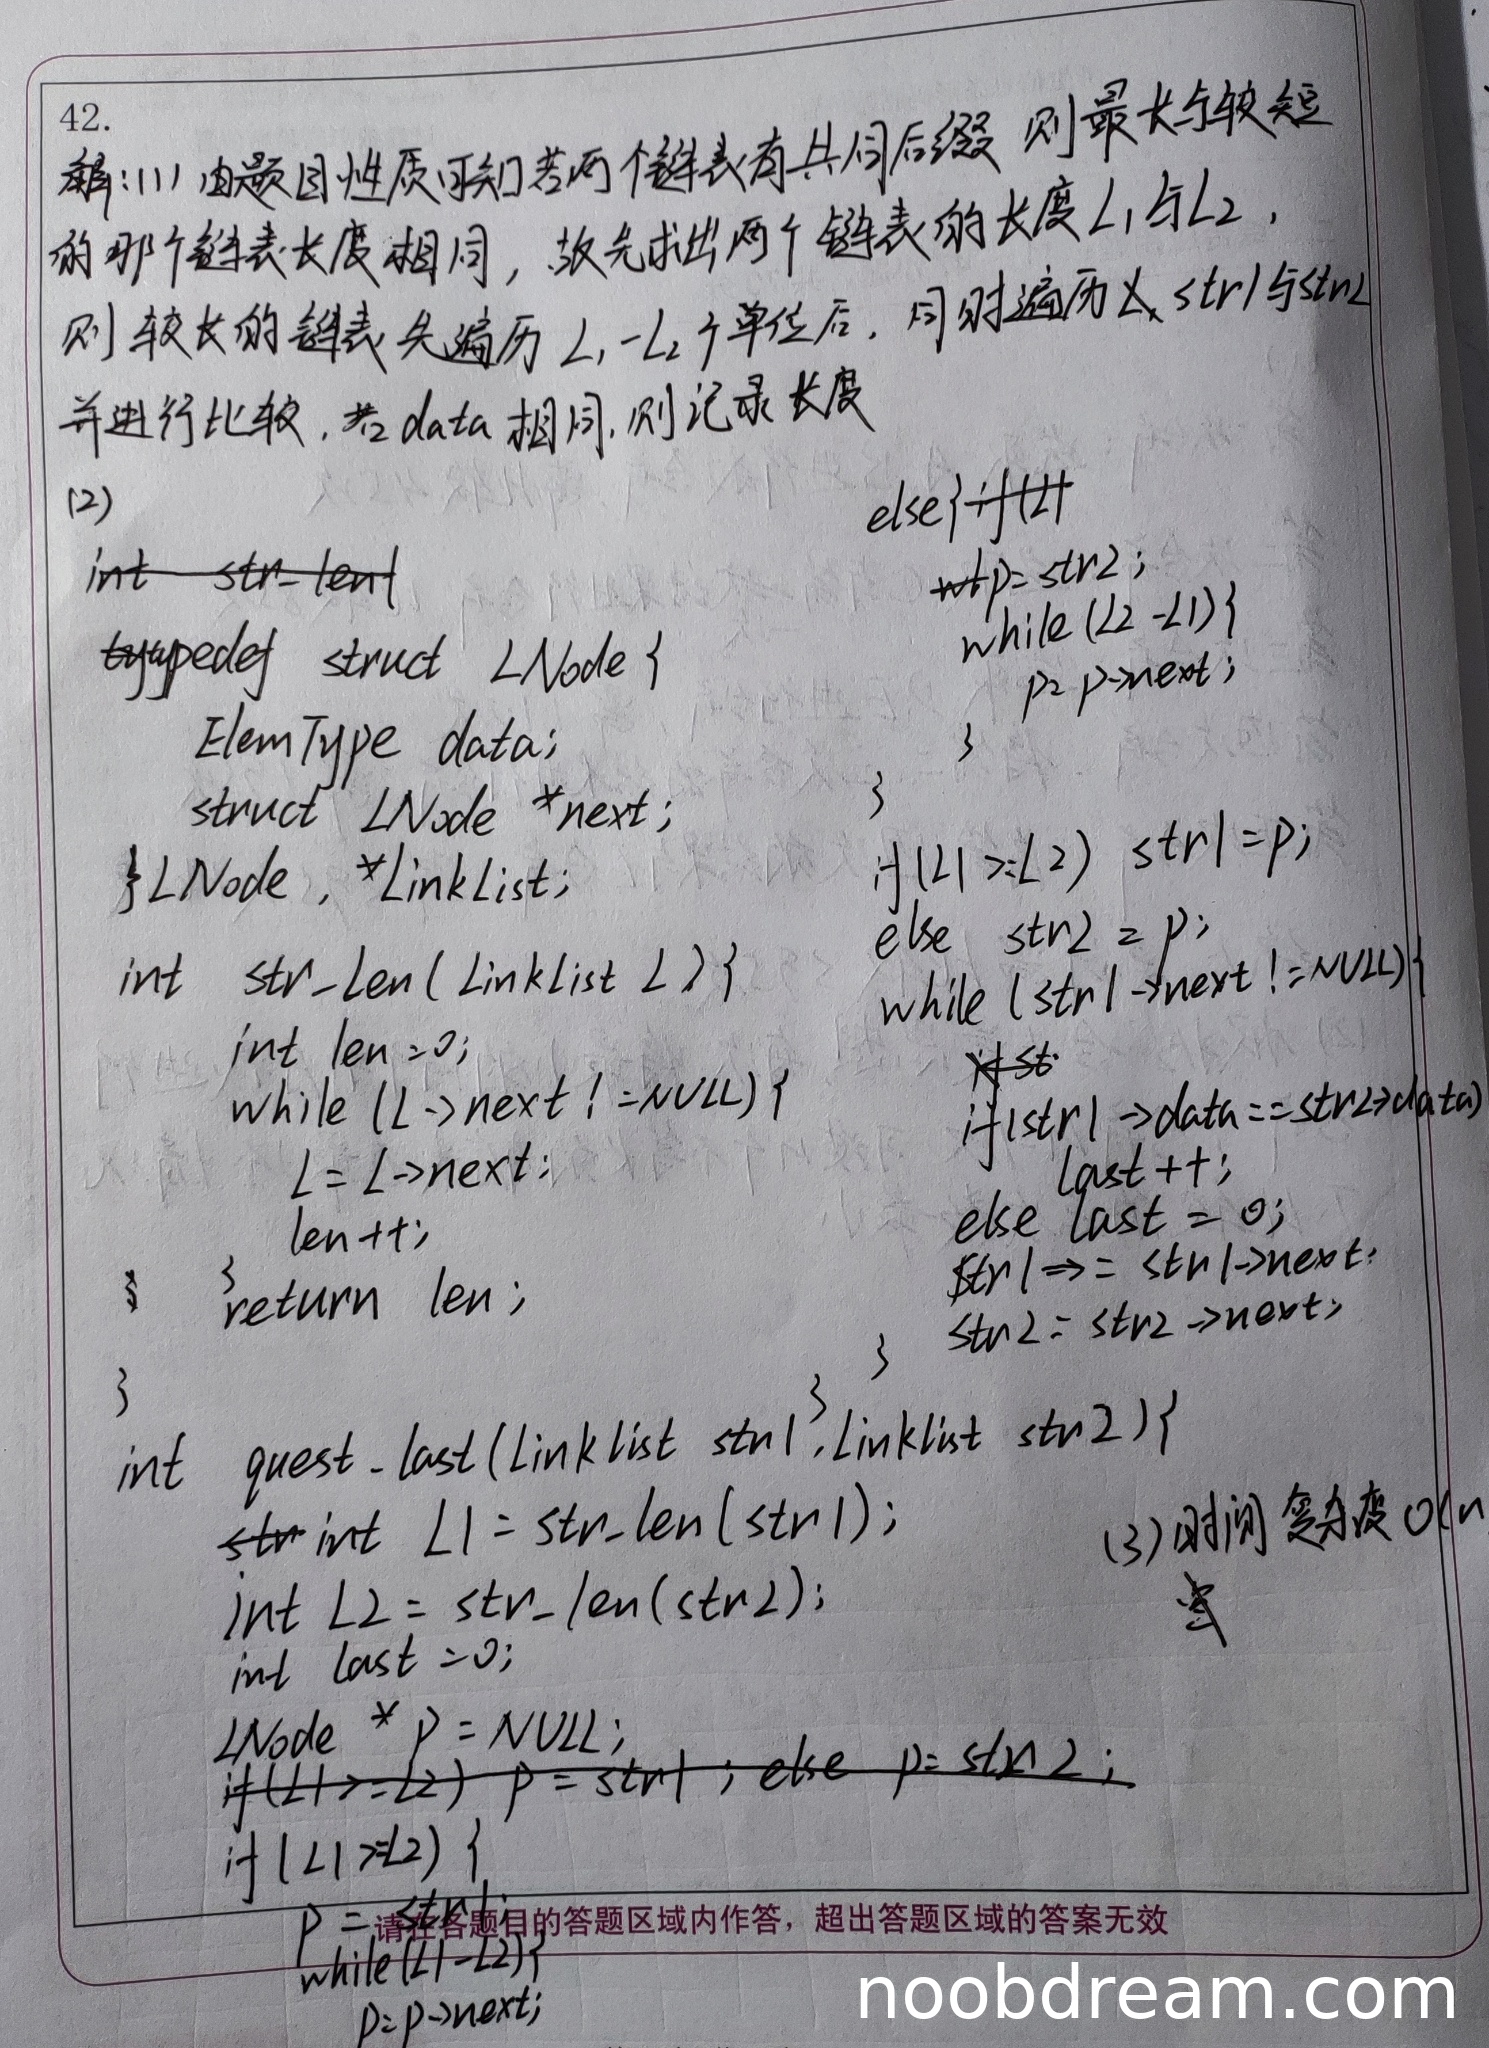 42.
解:(1) 由题目性质可知若两个链表有共同后缀 则最长与较短
的那个链表长度相同，故先求出两个链表的长度L1与L2，
则较长的链表先遍历 L1-L2个单位后，同时遍历 str1与str2
并进行比较，若 data 相同，则记录长度
(2)
int str_len1
typedef struct LNode {
ElemType data;
struct LNode *next;
}LNode , *LinkList;
int str_len( Linklist L ) {
int len =0;
while (L->next !=NULL) {
L = L->next;
len++;
}
return len;
}
int quest_last(Linklist str1, Linklist str2) {
str int L1 = str_len(str1);
int L2 = str_len(str2);
int last =0;
LNode * p = NULL;
if(L1>=L2) p = str1 ; else p= str2 ;
if(L1>=L2) {
p = str1;
while(L1-L2){
p=p->next;
else{ if(L1
p= str2;
while(L2-L1){
p= p->next;
}
}
if(L1>=L2) str1=p;
else str2 = p;
while (str1->next !=NULL){
if st
if(str1->data==str2->data)
last++;
else last = 0;
str1 = str1->next;
str2= str2->next;
}
}
(3)时间复杂度O(n
请在各题目的答题区域内作答，超出答题区域的答案无效
noobdream.com